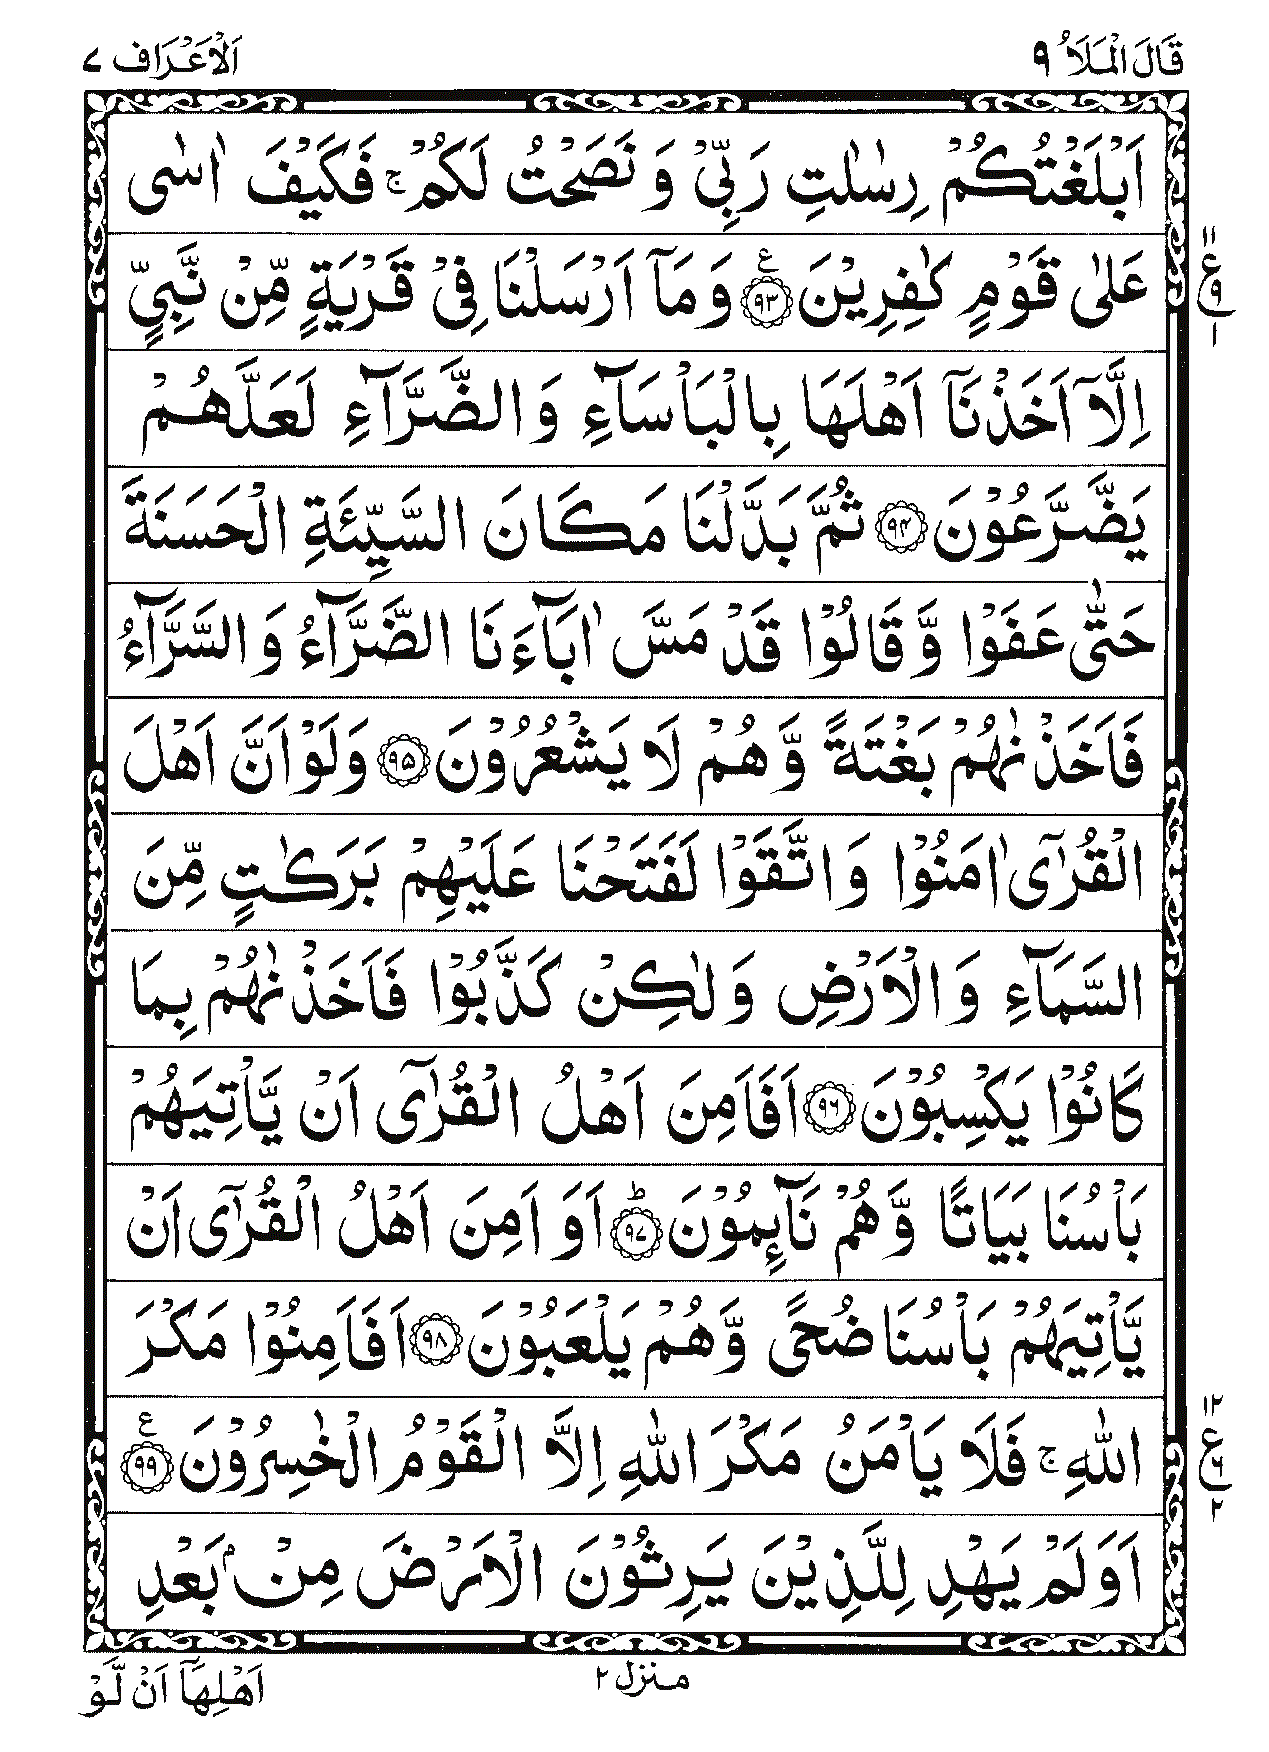 قَالَ الْمَلَاُ ٩
اَلْاَعْرَاف ٧
اَبْلَغْتُكُمْ رِسٰلٰتِ رَبِّيْ وَ نَصَحْتُ لَكُمْ ۚ فَكَيْفَ اٰسٰى
عَلٰى قَوْمٍ كٰفِرِيْنَ ﴿۹۳﴾ ع وَ مَاۤ اَرْسَلْنَا فِيْ قَرْيَةٍ مِّنْ نَّبِيٍّ
١١
ع
٩
١
اِلَّاۤ اَخَذْنَاۤ اَهْلَهَا بِالْبَاْسَآءِ وَ الضَّرَّآءِ لَعَلَّهُمْ
يَضَّرَّعُوْنَ ﴿۹۴﴾ ثُمَّ بَدَّلْنَا مَكَانَ السَّيِّئَةِ الْحَسَنَةَ
حَتّٰى عَفَوْا وَّ قَالُوْا قَدْ مَسَّ اٰبَآءَنَا الضَّرَّآءُ وَ السَّرَّآءُ
فَاَخَذْنٰهُمْ بَغْتَةً وَّ هُمْ لَا يَشْعُرُوْنَ ﴿۹۵﴾ وَلَوْ اَنَّ اَهْلَ
الْقُرٰۤى اٰمَنُوْا وَ اتَّقَوْا لَفَتَحْنَا عَلَيْهِمْ بَرَكٰتٍ مِّنَ
السَّمَآءِ وَ الْاَرْضِ وَ لٰكِنْ كَذَّبُوْا فَاَخَذْنٰهُمْ بِمَا
كَانُوْا يَكْسِبُوْنَ ﴿۹۶﴾ اَفَاَمِنَ اَهْلُ الْقُرٰۤى اَنْ يَّاْتِيَهُمْ
بَاْسُنَا بَيَاتًا وَّ هُمْ نَآئِمُوْنَ ﴿۹۷﴾ؕ اَوَ اَمِنَ اَهْلُ الْقُرٰۤى اَنْ
يَّاْتِيَهُمْ بَاْسُنَا ضُحًى وَّ هُمْ يَلْعَبُوْنَ ﴿۹۸﴾ اَفَاَمِنُوْا مَكْرَ
اللّٰهِ ۚ فَلَا يَاْمَنُ مَكْرَ اللّٰهِ اِلَّا الْقَوْمُ الْخٰسِرُوْنَ ﴿۹۹﴾ ع
١٢
ع
٦
٢
اَوَلَمْ يَهْدِ لِلَّذِيْنَ يَرِثُوْنَ الْاَرْضَ مِنْۢ بَعْدِ
منزل ٢
اَهْلِهَاۤ اَنْ لَّوْ